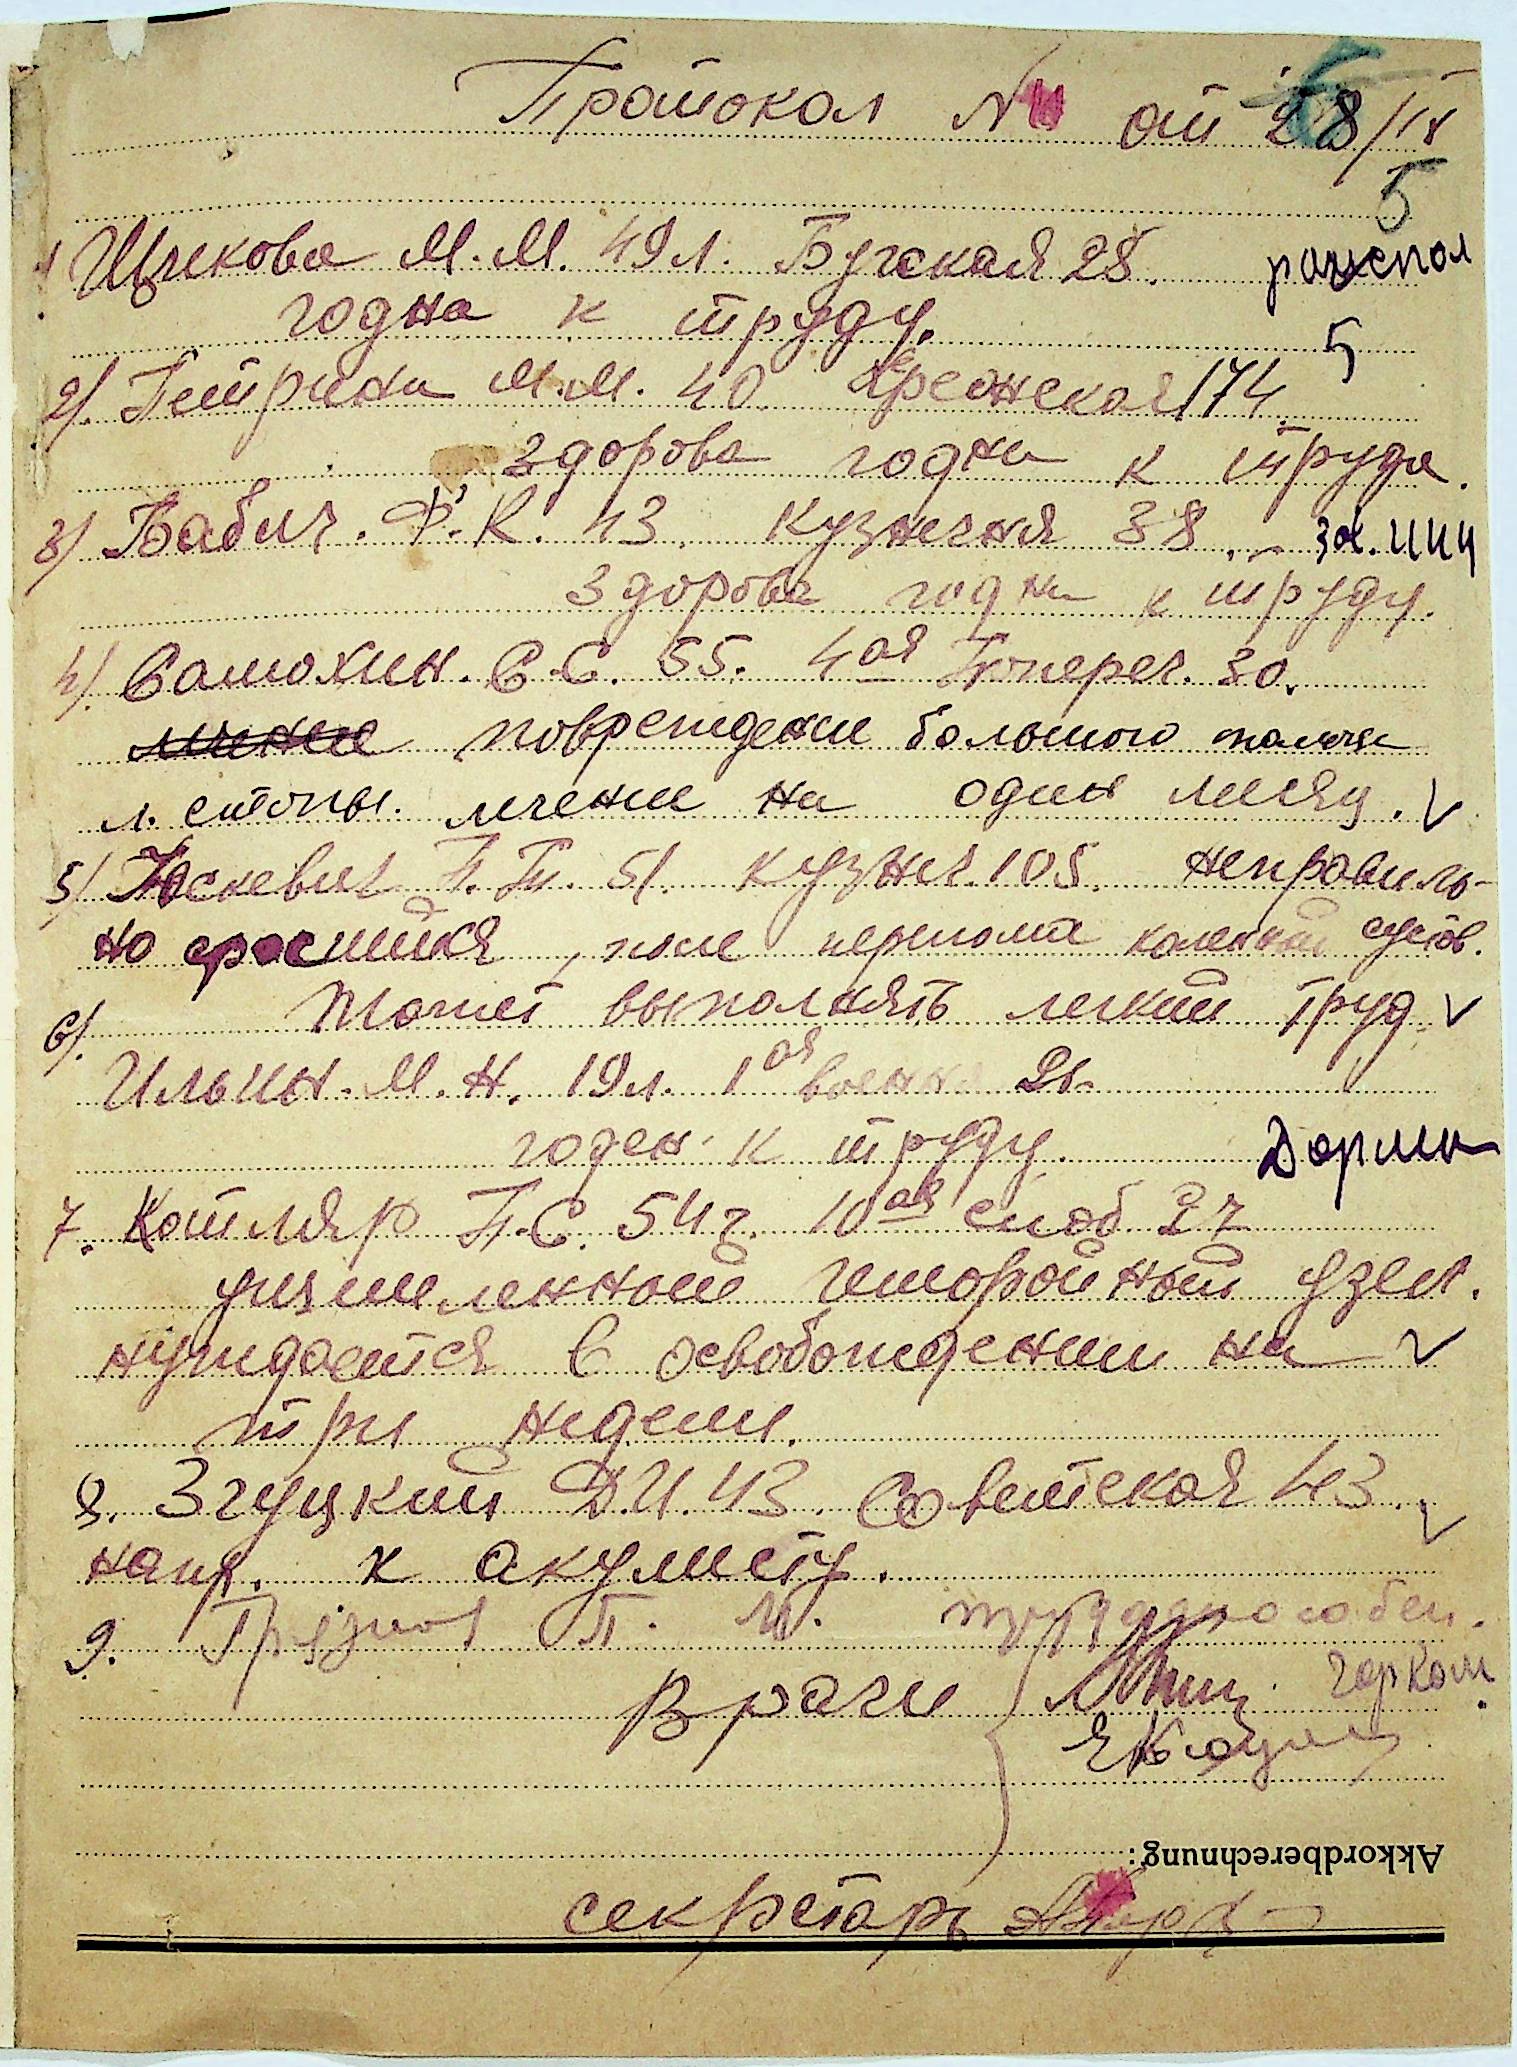 Протокол № 11 от 28/IX
5
1 Щукова М.М. 49 л. Бугская 28.
годна к труду.
5
2). Петрина М.М. 40 174
здорова годна к труду.
3) Бабич. Ф.К. 43. Кузнечная 38.
здорова годна к труду.
4). Самохин. С.С. 55. 4ая Попереч. 30.
лечение повреждение большого пальца
л. стопы. лечение на один месяц. V
5) Юскевич П.П. 51. Кузнеч. 105. неправиль-
но сросшийся, после перелома коленный сустав.
Может выполнять легкий труд V
6).
Ильин. М.Н. 19 л. 1ая военная
годен к труду.
7. Котляр П.С. 54 г. 10ая слоб 27
ущемленный геморойный узел.
нуждается в освобождении на V
три недели.
8. Згуцкий Д.И. 43. Советская 43. V
напр. к окулисту.
9. Грязнов П. трудоспособен.
Врачи
Akkordberechnung:
секретарь